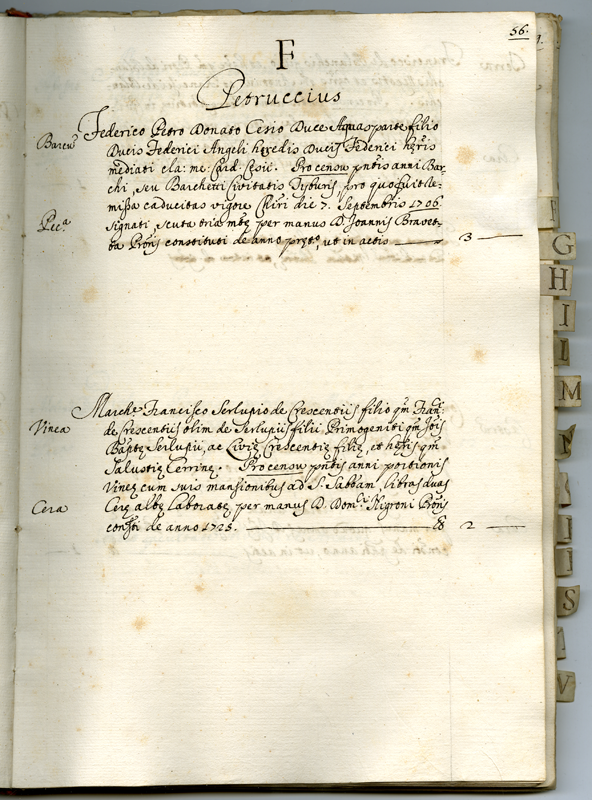 56.
F
Petruccius
Federico Petro Donato Cesio Duce Aquaspartę filio
Barcę Ducis Federici Angeli hęredis Ducis Federici hęris
mediati cla: me: Card: Cęsic. Pro censu pntis anni Bar-
chi, seu Barchetti Civitatis Tyburis, pro quo fuit Re-
missa caducitas vigore Chiri die 7. Septembris 1706.
Pec.ª signati, scuta tria mtę per manus D. Joannis Bravet-
ta Pronis constituti de anno pręt.º, ut in actis 3
March.e Francisco Serlupio de Crescentiis filio qm Franci
Vinea de Crescentiis olim de Serlupiis filii Primogeniti qm Jois
Baptę Serlupii, ac Civię Crescentię filię, et hęris qm
Salustię Cerrinę. Pro censu pntis anni portionis
Vineę cum suis mansionibus ad S. Sabbam, libras duas
Cera Cerę albę laboratę, per manus D. Domci Nigroni Pronis
consti de anno 1725. 2
G
H
I
L
M
S
V